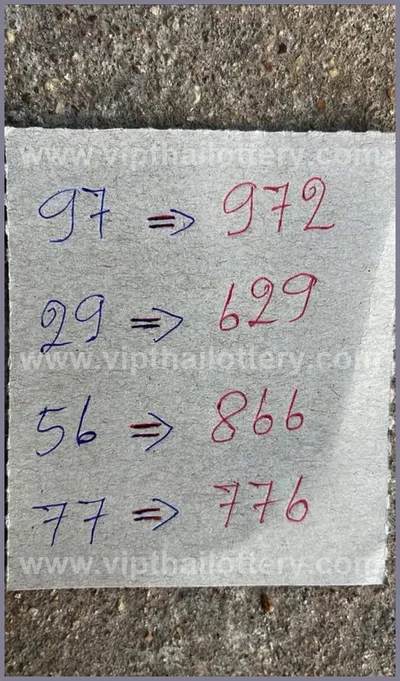 www.vipthailottery.com
97 => 972
29 => 629
www.vipthailottery.com
56 => 866
77 => 776
www.vipthailottery.com